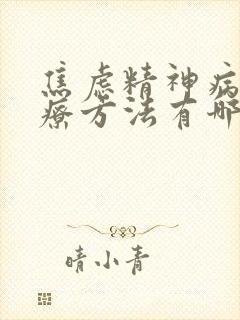 焦虑精神病
疗方法有哪
晴小青